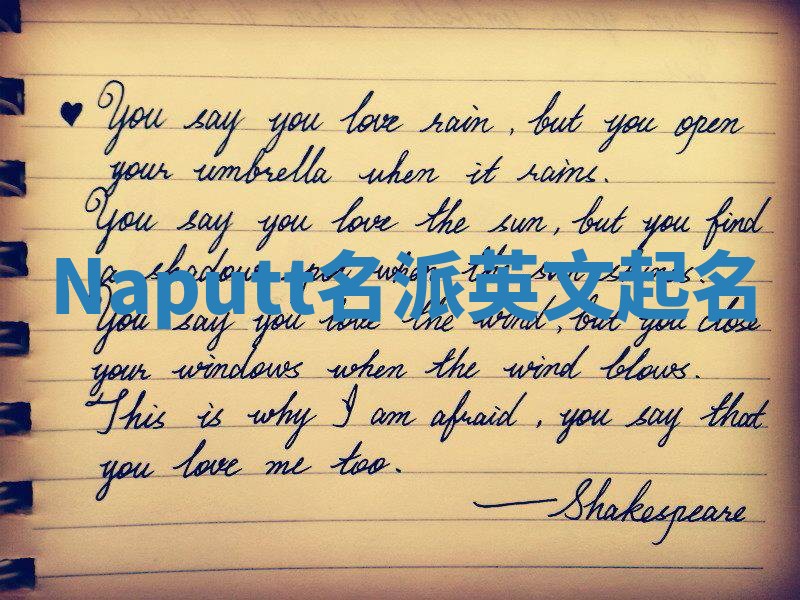 ♥ You say you love rain, but you open
your umbrella when it rains.
You say you love the sun, but you find
a shadow spot when the sun shines.
Naputt名派英文起名
You say you love the wind, but you close
your windows when the wind blows.
This is why I am afraid, you say that
you love me too.
—Shakespeare